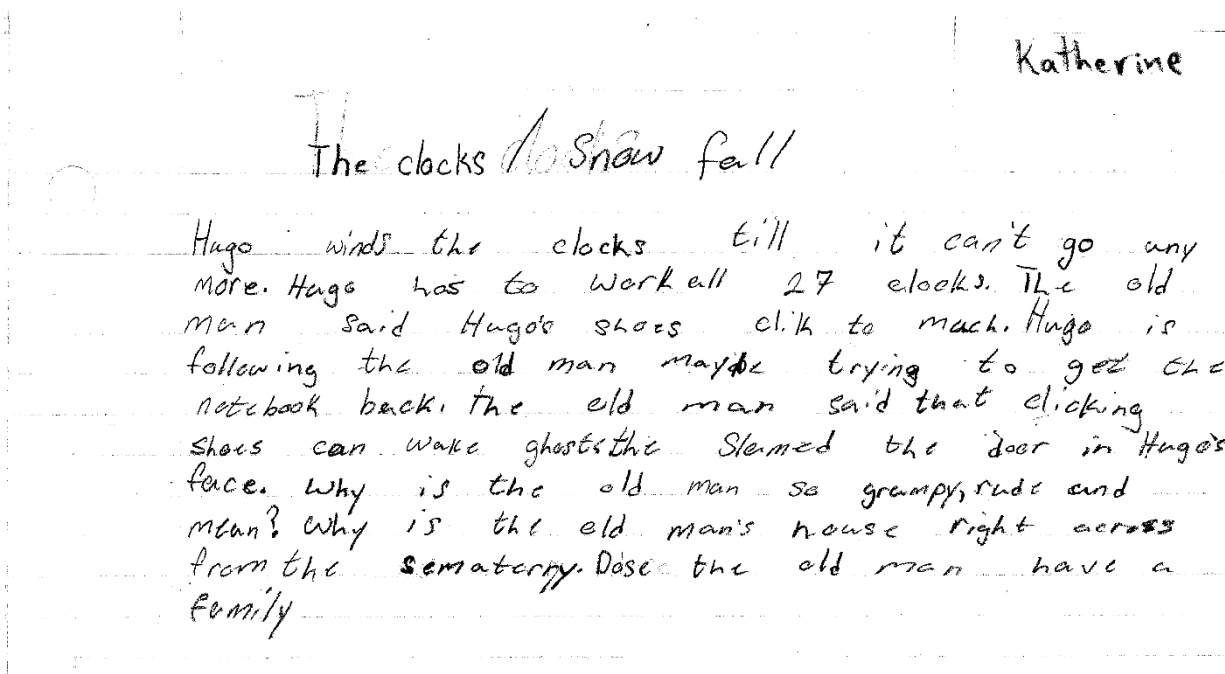 Katherine
The clocks / Snow fall
Hugo winds the clocks till it can't go any
more. Hugo has to work all 27 clocks. The old
man said Hugo's shoes clik to mach. Hugo is
following the old man maybe trying to get the
notebook back. The old man said that clicking
shoes can wake ghosts. He Slamed the door in Hugo's
face. Why is the old man so grumpy, rude and
mean? Why is the old man's house right across
from the sematerry. Dose the old man have a
family